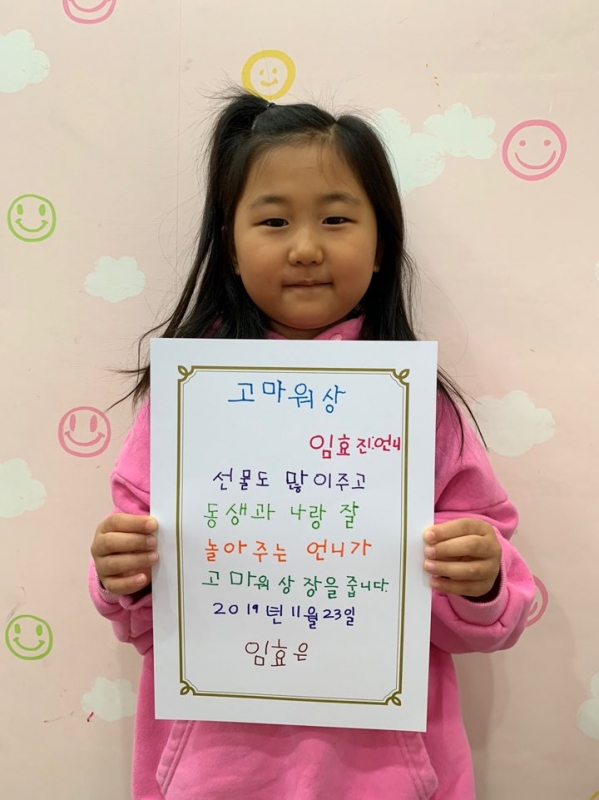 고마워상
임효진:언니
선물도 많이주고
동생과 나랑 잘
놀아주는 언니가
고마워상장을 줍니다.
2019년 11월 23일
임효은